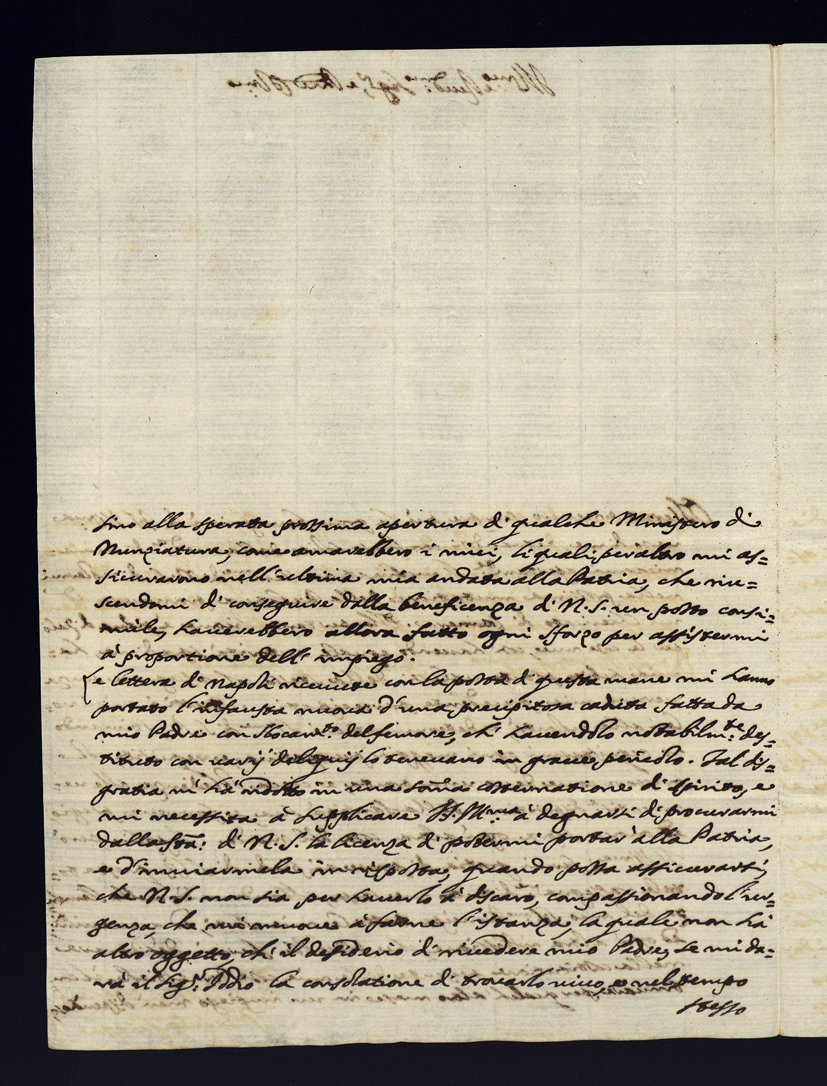 sino alla sperata prossima apertura di qualche Ministero di
Nunziatura, come amarebbero i miei, li quali per altro mi as=
sicurarono nell'ultima mia andata alla Patria, che riu=
scendomi di conseguire dalla beneficenza di N. S. un posto consi=
mile, haverebbero allora fatto ogni sforzo per assistermi
à proportione dell'impiego.
Le lettere di Napoli ricevute con la posta di questa mane mi hanno
portato l'infausta nuova d'una precipitosa caduta fatta da
mio Padre con slocam.to del femore, ch'havendolo notabilm.te des=
tituto con varij deliquij lo tenevano in grave pericolo. Tal dis=
gratia m'hà ridotto in una somma costernatione di spirito, e
mi necessita à supplicare Ill.ma à degnarsi di procurarmi
dalla S.tà di N. S. la licenza di potermi portar' alla Patria,
e d'inviarmela in risposta, quando possa assicurarsi,
che N. S. non sia per haverlo à discaro, compassionando l'ur=
genza, che mi muove à farne l'istanza, la quale non hà
altro oggetto, ch'il desiderio di rivedere mio Padre, se mi da=
rà il Sig.r Iddio la consolatione di trovarlo vivo, e nel tempo
stesso